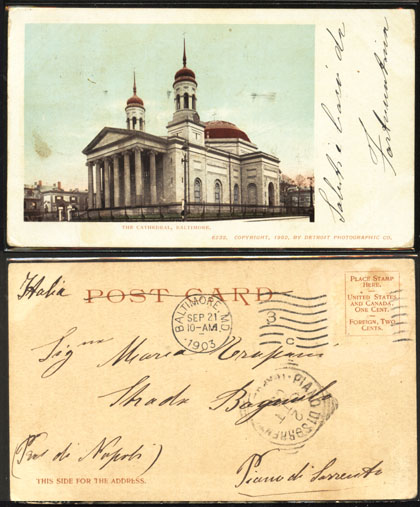 THE CATHEDRAL, BALTIMORE.
6232. COPYRIGHT, 1902, BY DETROIT PHOTOGRAPHIC CO.
Saluti e baci da
Fortuntina
Italia
POST CARD
PLACE STAMP
HERE.
UNITED STATES
AND CANADA,
ONE CENT.
FOREIGN, TWO
CENTS.
BALTIMORE, MD.
SEP 21
10-AM
1903
3
C
Sig.na Maria
Strada
PIANO DI SORREN
(Prov. di Napoli)
Piano di Sorrento
THIS SIDE FOR THE ADDRESS.